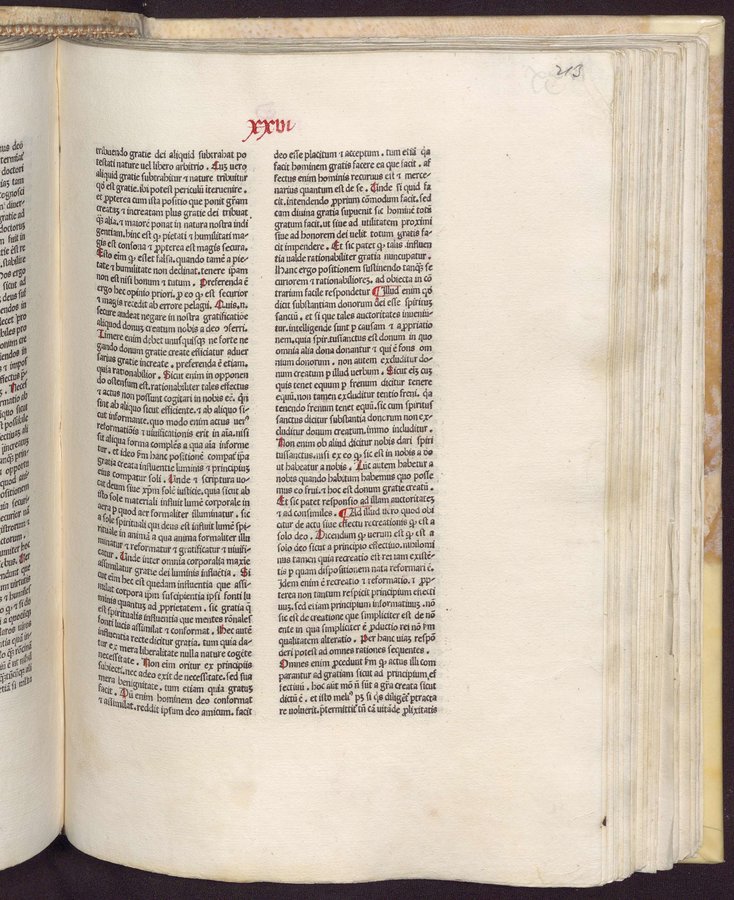 213
xxvi
tribuendo gratie dei aliquid subtrahat po
testati nature uel libero arbitrio. Cuʒ uero
aliquid gratie subtrahitur ⁊ nature tribuitur
qd̄ est gratie. ibi potest periculū interuenire.
et ꝓpterea cum ista positio que ponit gr̄am
creatāʒ ⁊ increatam plus gratie dei tribuat
q̄ꝫ alia. ⁊ maiorē ponat in natura nostra indi
gentiam. hinc est ꝙ pietati ⁊ humilitati ma-
gis est consona ⁊ ꝓpterea est magis secura.
Esto eim ꝙ esset falsa. quando tamē a pie-
tate ⁊ humilitate non declinat. tenere ip̄am
non est nisi bonum ⁊ tutum. Preferenda ē
ergo hec opinio priori. ꝓ eo ꝙ est securior
⁊ magis recedit ab errore pelagij. Quis.n.
secure audeat negare in nostra gratificatiōe
aliquod donuʒ creatum nobis a deo offerri.
Timere enim debet unusquisqʒ ne forte ne
gando donum gratie create efficiatur aduer
sarius gratie increate. preferenda ē etiam.
quia rationabilior. Sicut enim in opponen
do ostensum est. rationabiliter tales effectus
⁊ actus non possunt cogitari in nobis eē. qn̄
sint ab aliquo sicut efficiente. ⁊ ab aliquo si-
cut informante. quo modo enim actus uer⁹
reformatiōis ⁊ uiuificationis erit in aīa. nisi
sit aliqua forma complēs a qua aīa informe
tur. et ideo ſm hanc positionē compat̄ ip̄a
gratia creata influentie luminis ⁊ principiuʒ
eius compatur soli. Unde ⁊ scriptura uo-
cat deum siue xp̄m solē iusticie. quia sicut ab
isto sole materiali influit lumē corporale in
aera ꝑ quod aer formaliter illuminatur. sic
a sole spirituali qui deus est influit lumē spi-
rituale in animā a qua anima formaliter illu
minatur ⁊ reformatur ⁊ gratificatur ⁊ uiuifi-
catur. Unde inter omnia corporalia maxie
assimilatur gratie dei luminis influētia. Si
cut eim hec est quedam influentia que assi-
milat corpora ipm suscipientia ipsi fonti lu
minis quantuʒ ad ꝓprietatem. sic gratia ē
est spiritualis influentia que mentes rōnales
fonti lucis assimilat ⁊ conformat. Hec autē
influentia recte dicitur gratia. tum quia da-
tur ex mera liberalitate nulla nature cogēte
necessitate. Non eim oritur ex principiis
subiecti. nec adeo exit de necessitate. sed sua
mera benignitate. tum etiam quia gratuʒ
facit. Dū enim hominem deo conformat
⁊ assimilat. reddit ipsum deo amicum. facit
deo esse placitum ⁊ acceptum. tum etiā q̄a
facit hominem gratis facere ea que facit. af
fectus enim hominis recuruus est ⁊ merce-
narius quantum est de se. Unde si quid fa
cit. intendendo ꝓprium cōmodum facit. sed
cum diuina gratia supuenit sic hominē totū
gratum facit. ut siue ad utilitatem proximi
siue ad honorem dei uelit totum gratis fa-
cit impendere. Et sic patet ꝙ talis influen
tia ualde rationabiliter gratia nuncupatur.
Hanc ergo positionem sustinendo tanqʒ se
curiorem ⁊ rationabiliorē. ad obiecta in cō
trarium facile respondetur ¶ Illud enim qd̄
dicit substantiam donorum dei esse spirituʒ
sanctū. et si que tales auctoritates inueniū
tur. intelligende sunt ꝑ causam ⁊ appriatio
nem. quia spir̄.tusanctus est donum in quo
omnia alia dona donantur ⁊ qui ē fons om
nium donorum. non autem excluditur do-
num creatum ꝑ illud uerbum. Sicut eīʒ cuʒ
quis tenet equum ꝑ frenum dicitur tenere
equū. non tamen excluditur tentio freni. q̄a
tenendo frenum tenet equū. sic cum spiritus
sanctus dicitur substantia donorum non ex-
cluditur donum creatum. immo includitur.
Non enim ob aliud dicitur nobis dari spiri
tussanctus. nisi ex eo ꝙ sic est in nobis a do
ut habeatur a nobis. Tūc autem habetur a
nobis quando habitum habemus quo posse
mus eo frui. ⁊ hoc est donum gratie creatū.
Et sic patet responsio ad illam auctoritatēʒ
⁊ ad consimiles. ¶ Ad illud uero quod obi
citur de actu siue effectu recreationis ꝙ est a
solo deo. Dicendum ꝙ uerum est ꝙ est a
solo deo sicut a principio effectiuo. nihilomi
nus tamen quia recreatio est rei iam existē-
tis ꝑ quam dispositionem nata reformari ē.
Idem enim ē recreatio ⁊ reformatio. ⁊ ꝓp-
terea non tantum respicit principium effecti
uuʒ. sed etiam principium informatiuuʒ. nō
sic est de creatione que simpliciter est de nō
ente in qua simpliciter ē ꝓductio rei nō ſm
qualitatem alteratio. Per hanc uiaʒ respō
deri potest ad omnes rationes sequentes.
Omnes enim ꝓcedunt ſm ꝙ actus illi com
parantur ad gratiam sicut ad principium ef
fectiuū. hoc aūt mō nō sūt a gr̄a creata sicut
dictū ē. et isto meli⁹ pʒ si q̄s diligēt̄ ptracta
re uoluerit. p̄termittit̄ tn̄ cā uitāde ꝓlixitatis